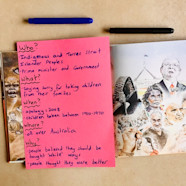 Who?
Indigenous and Torres Strait
Islander Peoples
Prime minister and Government
What?
Saying sorry for taking children
from their families
When?
February 2008
children taken between 1910-1970
Where?
all over Australia
Why?
people believed they should be
taught 'white' ways
people thought they were better